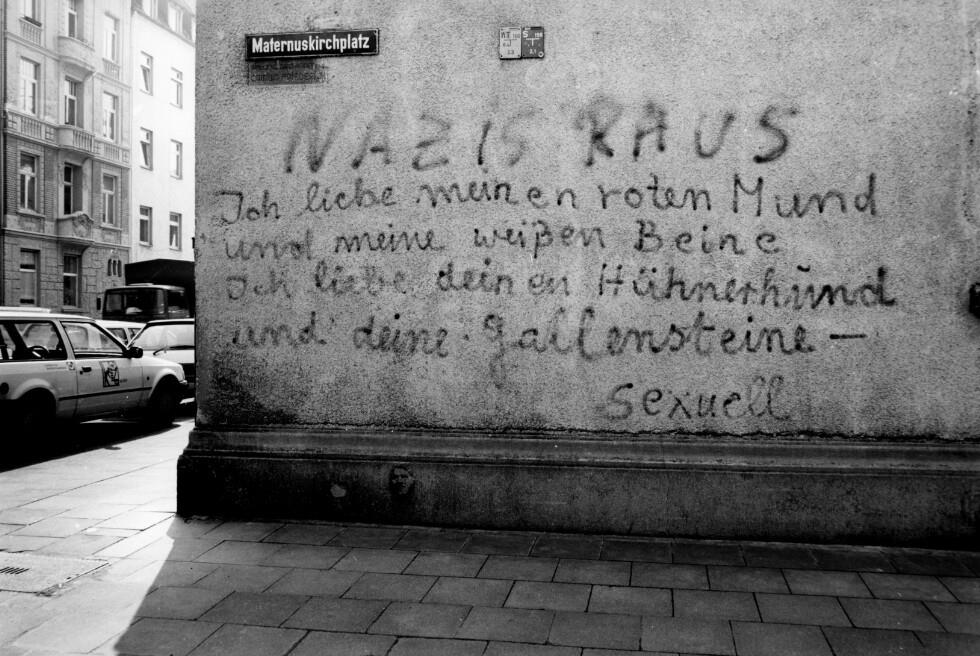 Maternuskirchplatz
NAZIS RAUS
Ich liebe meinen roten Mund
und meine weißen Beine
Ich liebe deinen Hühnerhund
und deine Gallensteine —
sexuell